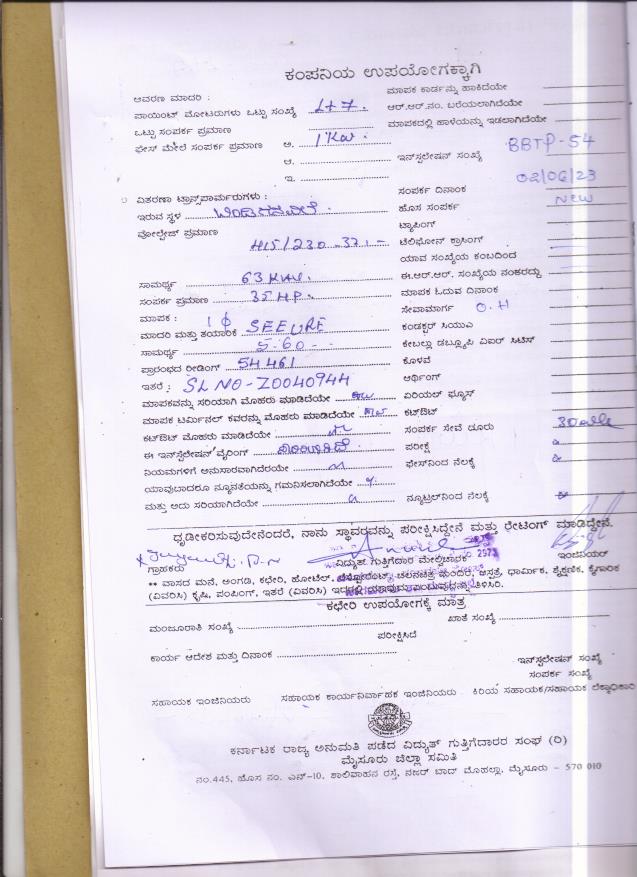 ಕಂಪನಿಯ ಉಪಯೋಗಕ್ಕಾಗಿ
ಆವರಣ ಮಾದರಿ :
ಮಾಪಕ ಕಾರ್ಡನ್ನು ಹಾಕಿದೆಯೇ
ಪಾಯಿಂಟ್ ಮೋಟರುಗಳು ಒಟ್ಟು ಸಂಖ್ಯೆ L+7.
ಆರ್.ಆರ್.ನಂ. ಬರೆಯಲಾಗಿದೆಯೇ
ಒಟ್ಟು ಸಂಪರ್ಕ ಪ್ರಮಾಣ
ಮಾಪಕದಲ್ಲಿ ಹಾಳೆಯನ್ನು ಇಡಲಾಗಿದೆಯೇ
ಫೇಸ್ ಮೇಲೆ ಸಂಪರ್ಕ ಪ್ರಮಾಣ ಅ. 1 Kw.
ಆ.
ಇನ್‌ಸ್ಟಲೇಷನ್ ಸಂಖ್ಯೆ BBTP-54
ಇ.
ವಿತರಣಾ ಟ್ರಾನ್ಸ್‌ಪಾರ್ಮರುಗಳು :
ಸಂಪರ್ಕ ದಿನಾಂಕ 02/06/23
ಇರುವ ಸ್ಥಳ
ಹೊಸ ಸಂಪರ್ಕ New
ವೋಲ್ಟೇಜ್ ಪ್ರಮಾಣ
ಟ್ಯಾಪಿಂಗ್
ಟೆಲಿಫೋನ್ ಕ್ರಾಸಿಂಗ್
ಯಾವ ಸಂಖ್ಯೆಯ ಕಂಬದಿಂದ
ಸಾಮರ್ಥ್ಯ 63 KVA.
ಈ.ಆರ್.ಆರ್. ಸಂಖ್ಯೆಯ ನಂತರದ್ದು
ಸಂಪರ್ಕ ಪ್ರಮಾಣ 35 HP.
ಮಾಪಕ ಓದುವ ದಿನಾಂಕ
ಮಾಪಕ :
ಸೇವಾಮಾರ್ಗ O.H
ಮಾದರಿ ಮತ್ತು ತಯಾರಿಕೆ 1 ϕ SEEURE
ಕಂಡಕ್ಟರ್ ಸಿಯುಎ
ಸಾಮರ್ಥ್ಯ 5-60
ಕೇಬಲ್ಲು ಡಬ್ಲ್ಯೂಪಿ ವಿಐರ್ ಸಿಟಿಸ್
ಪ್ರಾರಂಭದ ರೀಡಿಂಗ್ 54461
ಕೊಳವೆ
ಇತರೆ : SL NO-Z0040944
ಆರ್ಥಿಂಗ್
ಮಾಪಕವನ್ನು ಸರಿಯಾಗಿ ಮೊಹರು ಮಾಡಿದೆಯೇ
ಏರಿಯಲ್ ಫ್ಯೂಸ್
ಮಾಪಕ ಟರ್ಮಿನಲ್ ಕವರನ್ನು ಮೊಹರು ಮಾಡಿದೆಯೇ
ಕಟ್‌ಔಟ್
ಕಟ್‌ಔಟ್ ಮೊಹರು ಮಾಡಿದೆಯೇ
ಸಂಪರ್ಕ ಸೇವೆ ದೂರು
ಈ ಇನ್‌ಸ್ಟಲೇಷನ್ ವೈರಿಂಗ್
ಪರೀಕ್ಷೆ
ನಿಯಮಗಳಿಗೆ ಅನುಸಾರವಾಗಿದೆರಯೇ
ಫೇಸ್‌ನಿಂದ ನೆಲಕ್ಕೆ
ಯಾವುದಾದರೂ ನ್ಯೂನತೆಯನ್ನು ಗಮನಿಸಲಾಗಿದೆಯೇ
ಮತ್ತು ಅದು ಸರಿಯಾಗಿದೆಯೇ
ನ್ಯೂಟ್ರಲ್‌ನಿಂದ ನೆಲಕ್ಕೆ
ಧೃಡೀಕರಿಸುವುದೇನೆಂದರೆ, ನಾನು ಸ್ಥಾವರವನ್ನು ಪರೀಕ್ಷಿಸಿದ್ದೇನೆ ಮತ್ತು ರೇಟಿಂಗ್ ಮಾಡಿದ್ದೇನೆ.
ಗ್ರಾಹಕರು
ವಿದ್ಯುತ್ ಗುತ್ತಿಗೆದಾರ ಮೇಲ್ವಿಚಾರಕ
ಇಂಜಿನಿಯರ್
** ವಾಸದ ಮನೆ, ಅಂಗಡಿ, ಕಛೇರಿ, ಹೋಟೆಲ್, ಚಲನಚಿತ್ರ ಮಂದಿರ, ಆಸ್ಪತ್ರೆ, ಧಾರ್ಮಿಕ, ಶೈಕ್ಷಣಿಕ, ಕೈಗಾರಿಕ
(ವಿವರಿಸಿ) ಕೃಷಿ, ಪಂಪಿಂಗ್, ಇತರೆ (ವಿವರಿಸಿ) ತಿಳಿಸಿರಿ.
ಕಛೇರಿ ಉಪಯೋಗಕ್ಕೆ ಮಾತ್ರ
ಮಂಜೂರಾತಿ ಸಂಖ್ಯೆ
ಖಾತೆ ಸಂಖ್ಯೆ
ಪರೀಕ್ಷಿಸಿದೆ
ಕಾರ್ಯ ಆದೇಶ ಮತ್ತು ದಿನಾಂಕ
ಇನ್‌ಸ್ಟಲೇಷನ್ ಸಂಖ್ಯೆ
ಸಂಪರ್ಕ ಸಂಖ್ಯೆ
ಸಹಾಯಕ ಇಂಜಿನಿಯರು ಸಹಾಯಕ ಕಾರ್ಯನಿರ್ವಾಹಕ ಇಂಜಿನಿಯರು ಕಿರಿಯ ಸಹಾಯಕ/ಸಹಾಯಕ ಲೆಕ್ಕಾಧಿಕಾರಿ
ಕರ್ನಾಟಕ ರಾಜ್ಯ ಅನುಮತಿ ಪಡೆದ ವಿದ್ಯುತ್ ಗುತ್ತಿಗೆದಾರರ ಸಂಘ (ರಿ)
ಮೈಸೂರು ಜಿಲ್ಲಾ ಸಮಿತಿ
ನಂ.445, ಹೊಸ ನಂ. ಎನ್-10, ಶಾಲಿವಾಹನ ರಸ್ತೆ, ನಜರ್ ಬಾದ್ ಮೊಹಲ್ಲಾ, ಮೈಸೂರು - 570 010